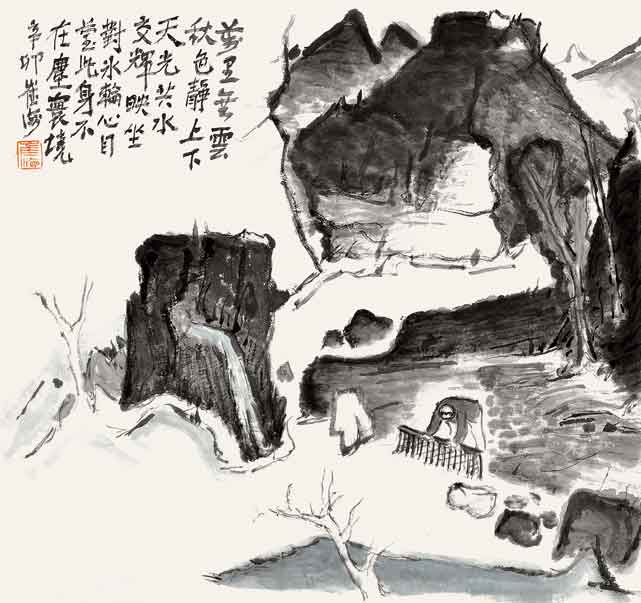 萬里無雲
秋色靜上下
天光共水
交輝映坐
對冰輪心目
瑩此身不
在塵寰境
辛卯崔海